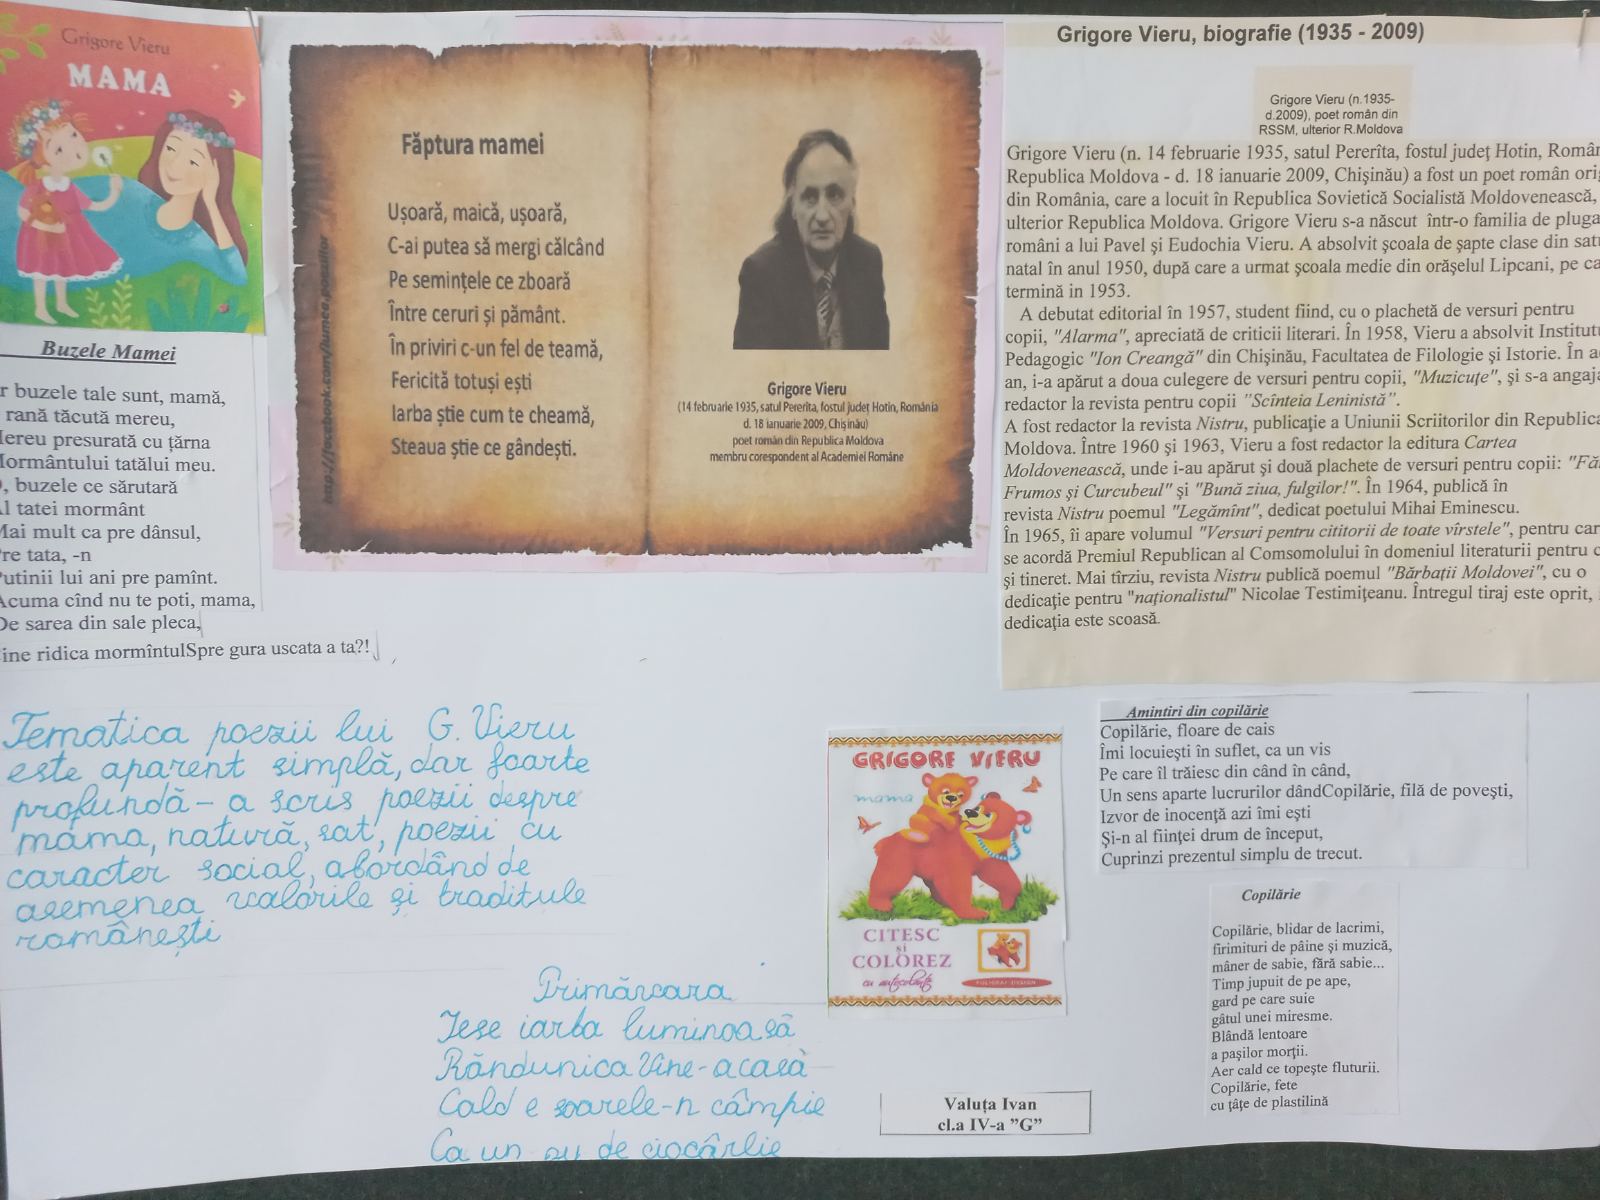 Grigore Vieru
MAMA
Buzele Mamei
r buzele tale sunt, mamă,
rană tăcută mereu,
ereu presurată cu țărna
ormântului tatălui meu.
, buzele ce sărutară
l tatei mormânt
Mai mult ca pre dânsul,
re tata, -n
utinii lui ani pre pamînt.
Acuma cînd nu te poti, mama,
De sarea din sale pleca,
ine ridica mormîntulSpre gura uscata a ta?!
http://facebook.com/lumea.poeziilor
Făptura mamei
Ușoară, maică, ușoară,
C-ai putea să mergi călcând
Pe semințele ce zboară
Între ceruri și pământ.
În priviri c-un fel de teamă,
Fericită totuși ești
Iarba știe cum te cheamă,
Steaua știe ce gândești.
Grigore Vieru
(14 februarie 1935, satul Pererîta, fostul județ Hotin, România
d. 18 ianuarie 2009, Chișinău)
poet român din Republica Moldova
membru corespondent al Academiei Române
Grigore Vieru, biografie (1935 - 2009)
Grigore Vieru (n.1935-
d.2009), poet român din
RSSM, ulterior R.Moldova
Grigore Vieru (n. 14 februarie 1935, satul Pererîta, fostul judeţ Hotin, Român
Republica Moldova - d. 18 ianuarie 2009, Chişinău) a fost un poet român ori
din România, care a locuit în Republica Sovietică Socialistă Moldovenească,
ulterior Republica Moldova. Grigore Vieru s-a născut într-o familia de pluga
români a lui Pavel şi Eudochia Vieru. A absolvit şcoala de şapte clase din sat
natal în anul 1950, după care a urmat şcoala medie din orăşelul Lipcani, pe ca
termină in 1953.
A debutat editorial în 1957, student fiind, cu o plachetă de versuri pentru
copii, "Alarma", apreciată de criticii literari. În 1958, Vieru a absolvit Institutu
Pedagogic "Ion Creangă" din Chişinău, Facultatea de Filologie şi Istorie. În a
an, i-a apărut a doua culegere de versuri pentru copii, "Muzicuţe", şi s-a angaja
redactor la revista pentru copii "Scînteia Leninistă".
A fost redactor la revista Nistru, publicaţie a Uniunii Scriitorilor din Republica
Moldova. Între 1960 şi 1963, Vieru a fost redactor la editura Cartea
Moldovenească, unde i-au apărut şi două plachete de versuri pentru copii: "Fă
Frumos şi Curcubeul" şi "Bună ziua, fulgilor!". În 1964, publică în
revista Nistru poemul "Legămînt", dedicat poetului Mihai Eminescu.
În 1965, îi apare volumul "Versuri pentru cititorii de toate vîrstele", pentru car
se acordă Premiul Republican al Comsomolului în domeniul literaturii pentru c
şi tineret. Mai tîrziu, revista Nistru publică poemul "Bărbaţii Moldovei", cu o
dedicaţie pentru "naţionalistul" Nicolae Testimiţeanu. Întregul tiraj este oprit,
dedicaţia este scoasă.
Tematica poezii lui G. Vieru
este aparent simplă, dar foarte
profundă – a scris poezii despre
mama, natură, sat, poezii cu
caracter social, abordând de
asemenea valorile și tradițiile
românești
Primăvara
Iese iarba luminoasă
Rândunica Vine-acasă
Cald e soarele-n câmpie
Ca un ou de ciocârlie
GRIGORE VIERU
mama
CITESC
și
COLOREZ
cu autocolante
POLIGRAF DESIGN
Amintiri din copilărie
Copilărie, floare de cais
Îmi locuieşti în suflet, ca un vis
Pe care îl trăiesc din când în când,
Un sens aparte lucrurilor dândCopilărie, filă de poveşti,
Izvor de inocenţă azi îmi eşti
Şi-n al fiinţei drum de început,
Cuprinzi prezentul simplu de trecut.
Copilărie
Copilărie, blidar de lacrimi,
firimituri de pâine şi muzică,
mâner de sabie, fără sabie...
Timp jupuit de pe ape,
gard pe care suie
gâtul unei miresme.
Blândă lentoare
a paşilor morţii.
Aer cald ce topeşte fluturii.
Copilărie, fete
cu ţâţe de plastilină
Valuța Ivan
cl.a IV-a ”G”